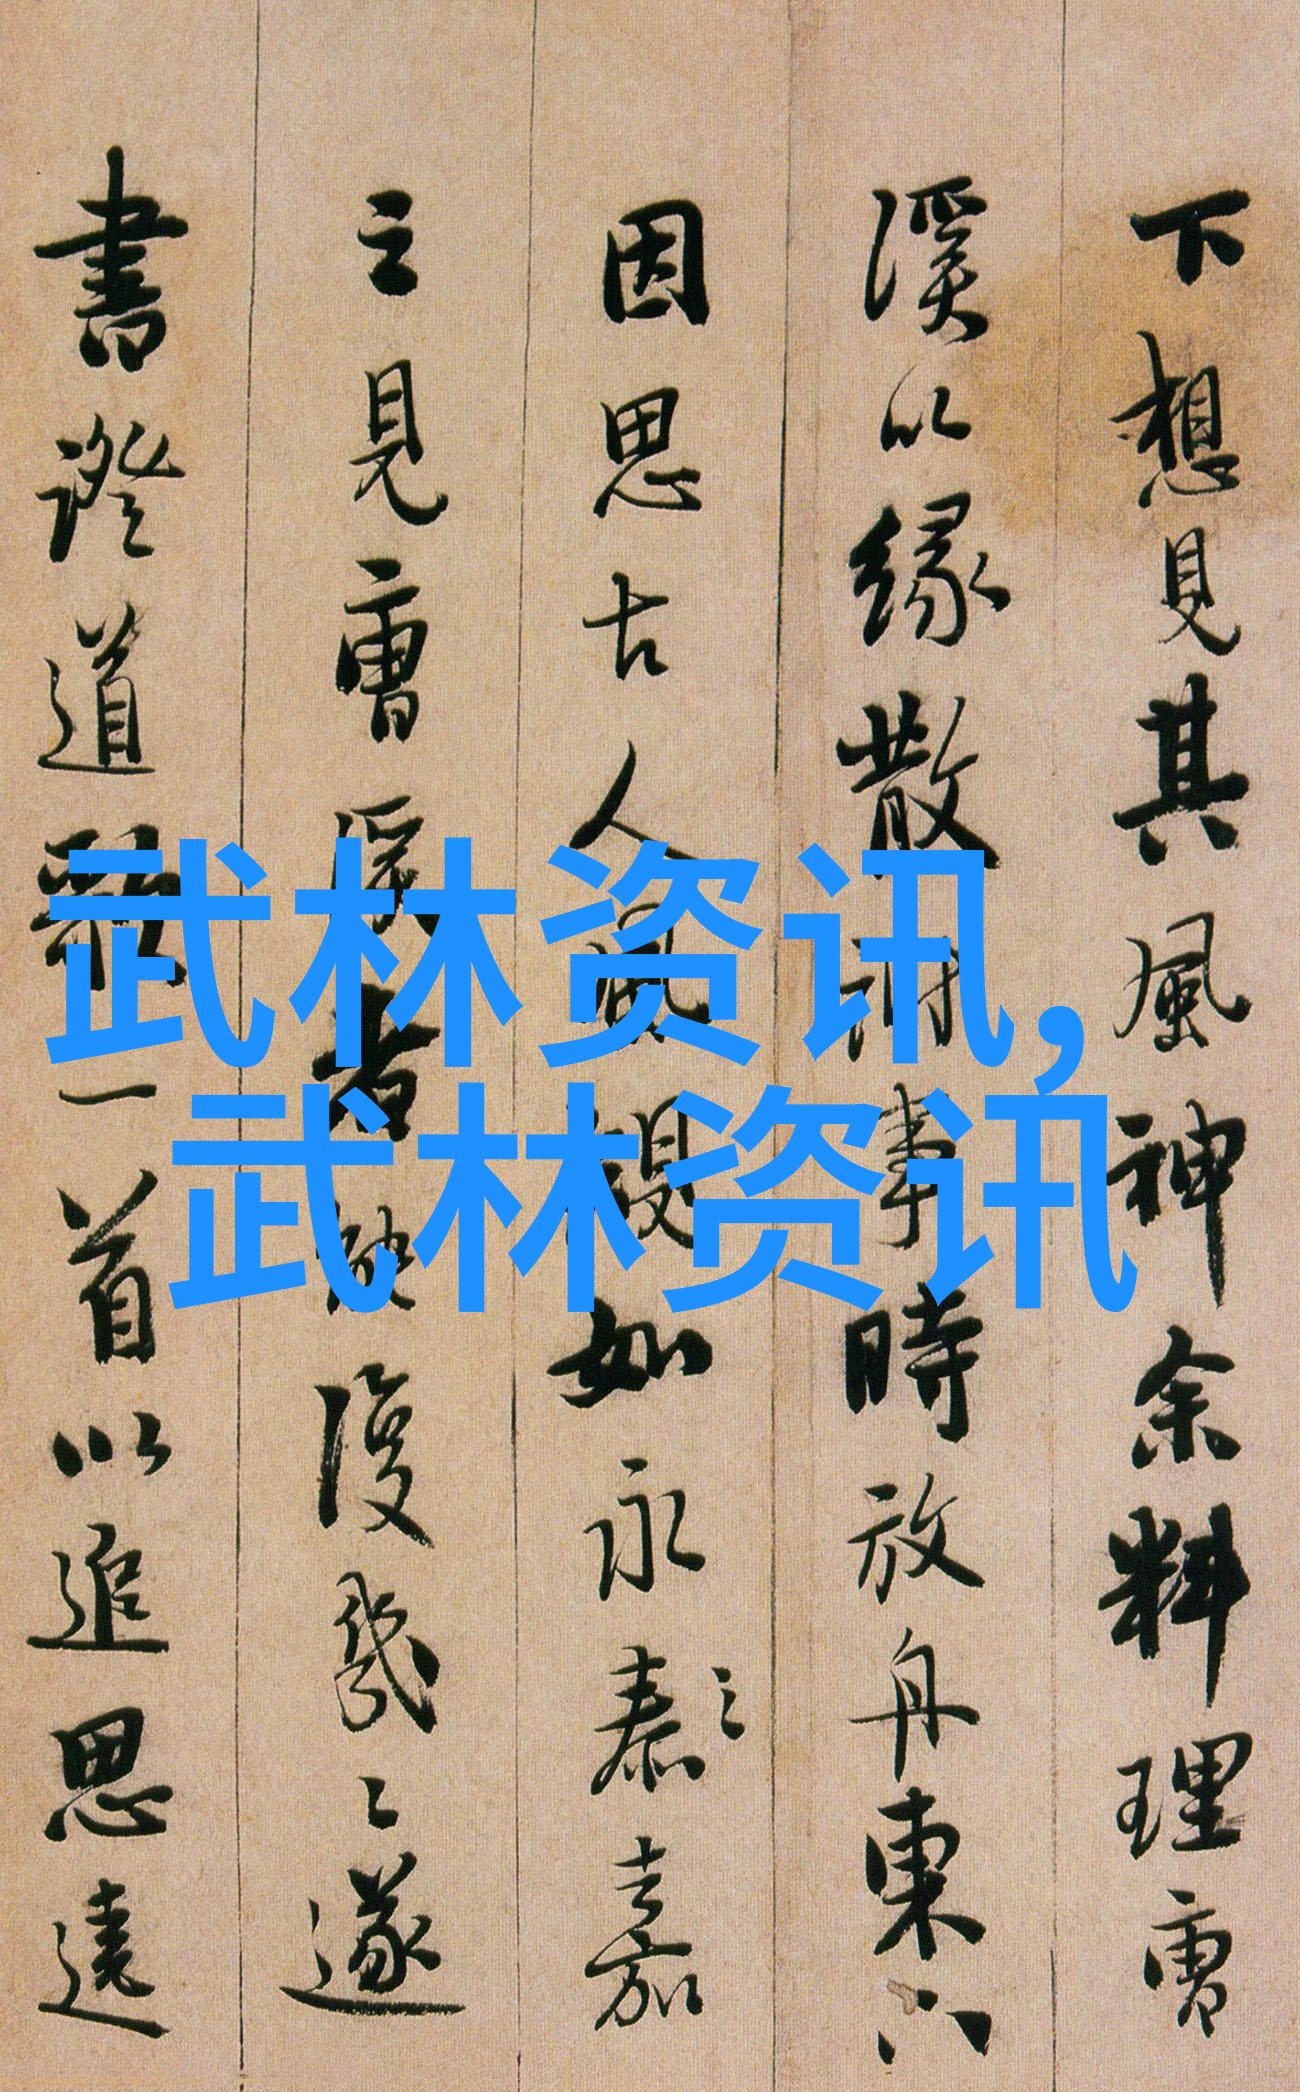 下想見其風神余料理曹
溪以緣散 事時放舟東下
因思古人風 如永泰之嘉
之見曹溪 復幾之遂
書證道歌一首以追思遠
武林资讯,
武林资讯